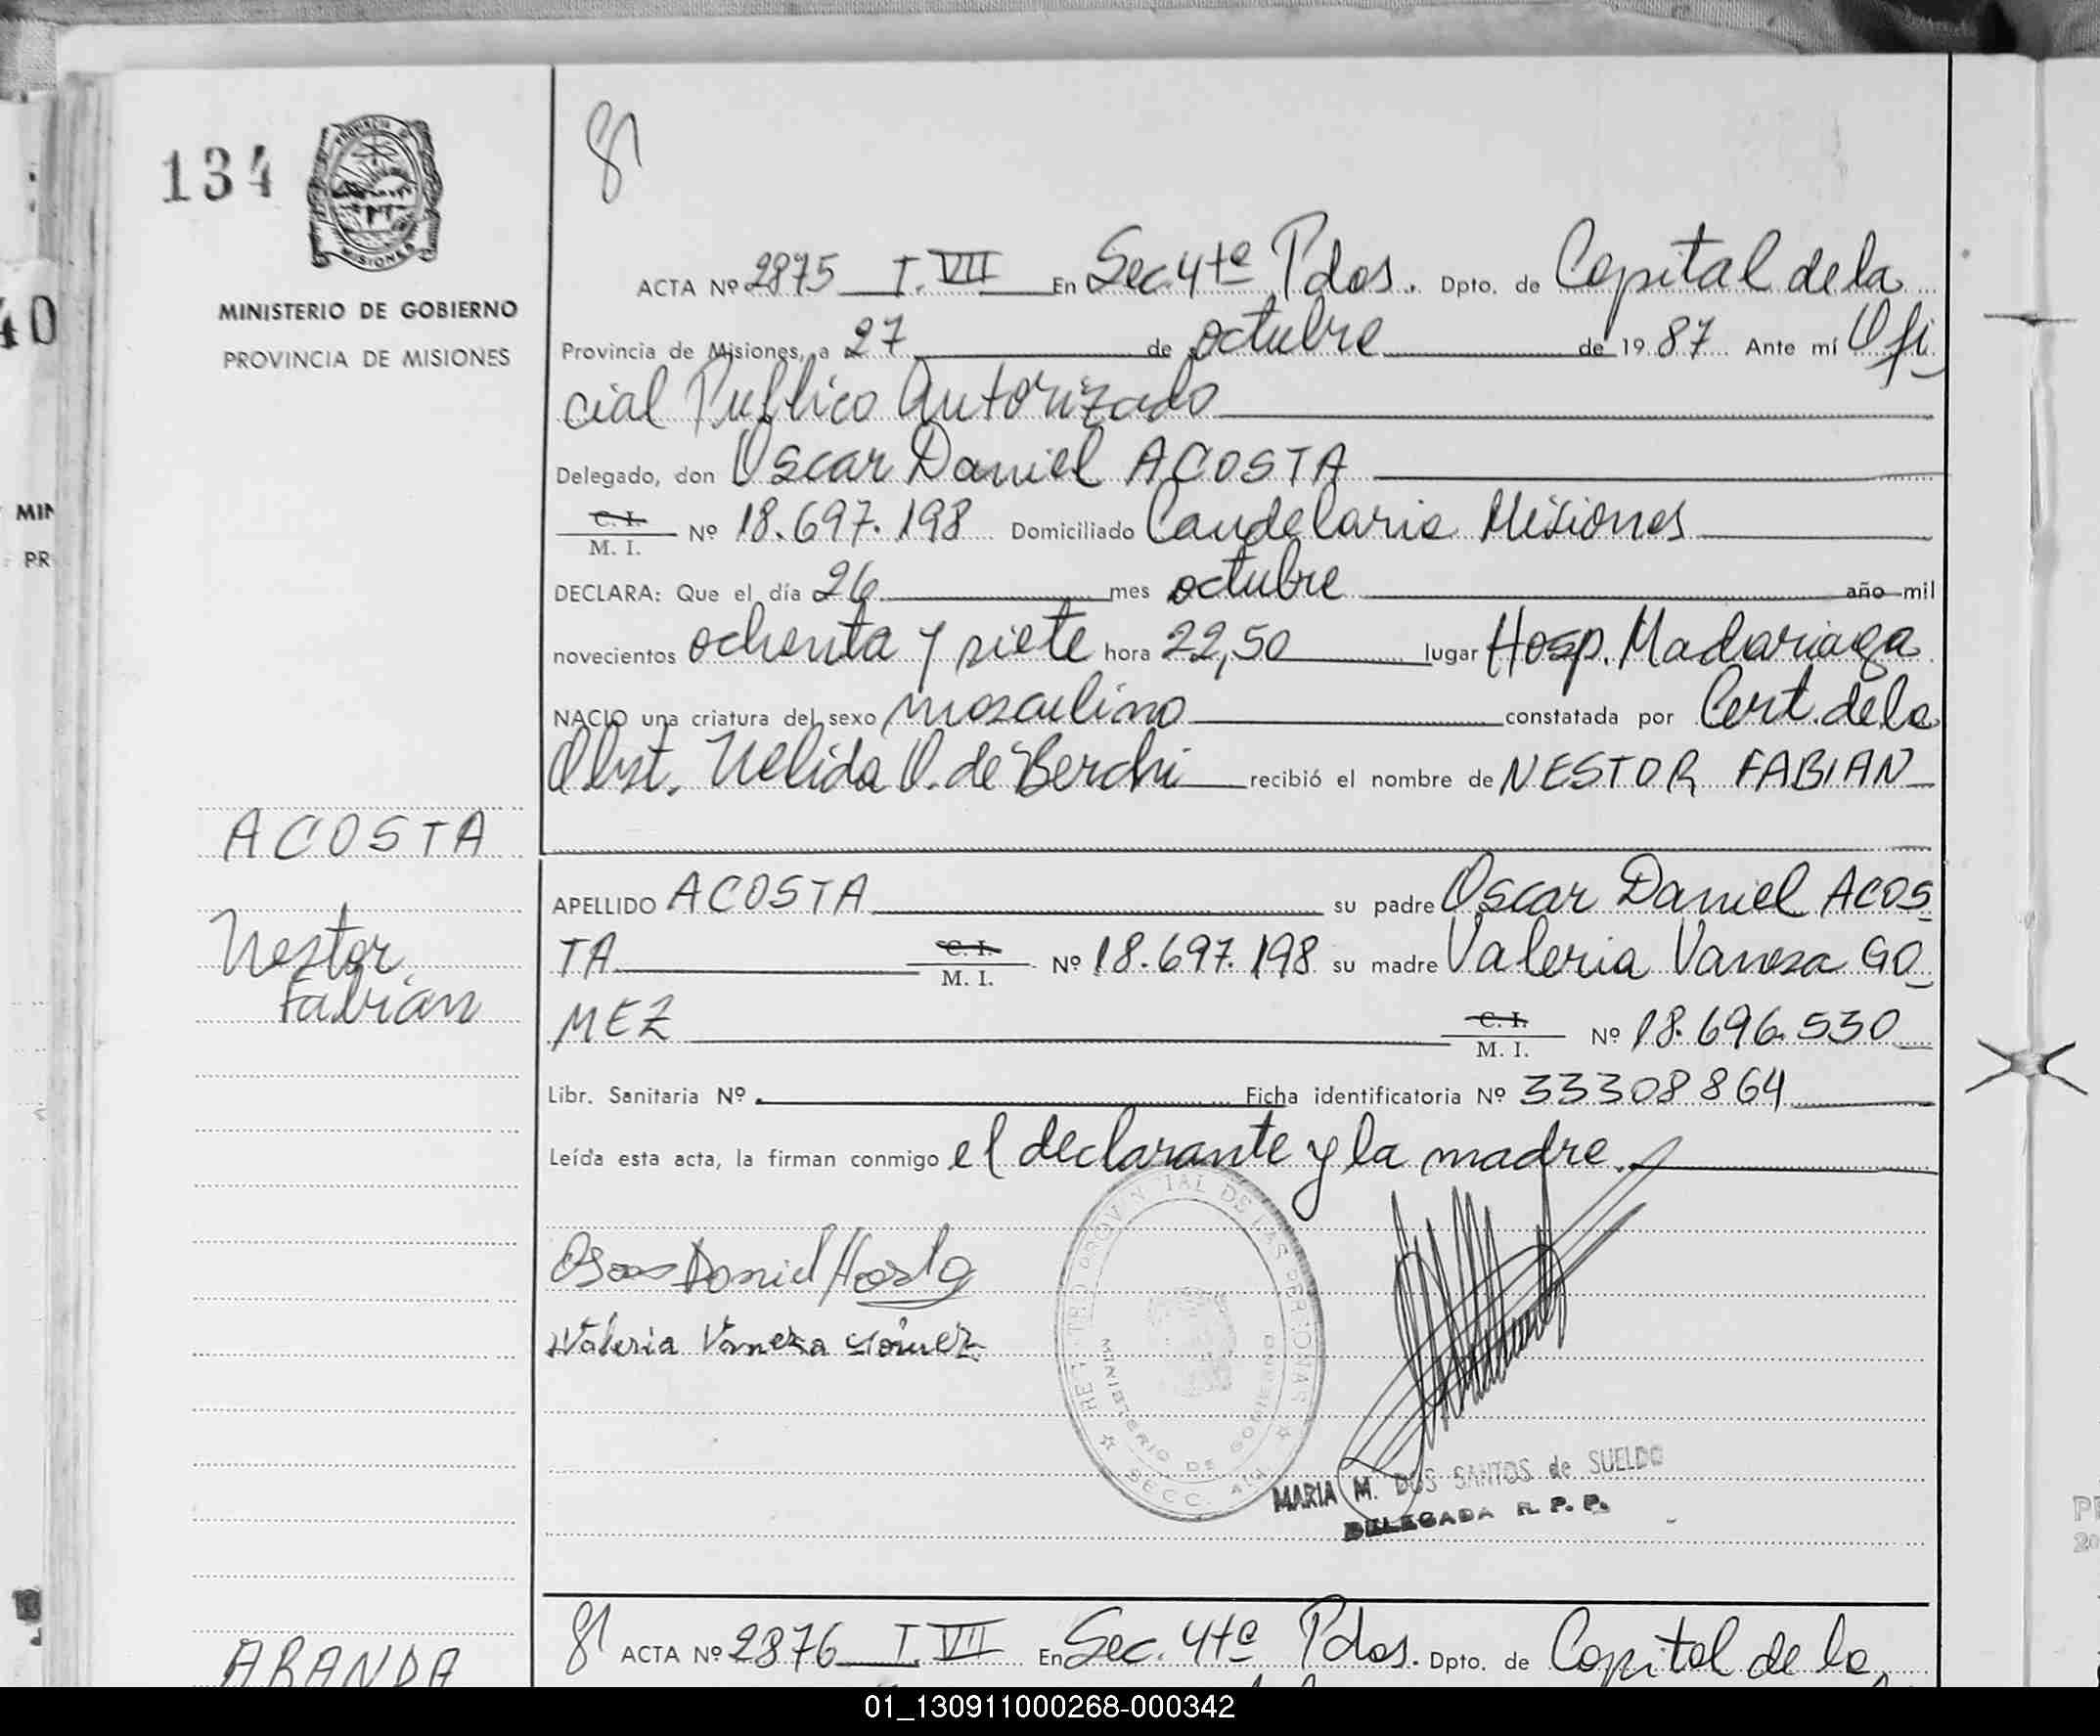 134
PROVINCIA DE
MISIONES
MINISTERIO DE GOBIERNO
PROVINCIA DE MISIONES
40
MIN
PR
ACOSTA
Nestor
Fabian
ARANDA
ACTA Nº 2875 T. VII En Sec. 4ta Pdas. Dpto. de Capital de la
Provincia de Misiones, a 27 de octubre de 19 87 Ante mí Ofi
cial Publico Autorizado
Delegado, don Oscar Daniel ACOSTA
C. I.
M. I. Nº 18.697.198 Domiciliado Candelaria Misiones
DECLARA: Que el día 26 mes octubre año mil
novecientos ochenta y siete hora 22,50 lugar Hosp. Madariaga
NACIO una criatura del sexo masculino constatada por Cert. de la
Obst. Nelida O. de Berchi recibió el nombre de NESTOR FABIAN
APELLIDO ACOSTA su padre Oscar Daniel ACOS
TA C. I. M. I. Nº 18.697.198 su madre Valeria Vanesa GO
MEZ C. I. M. I. Nº 18.696.530
Libr. Sanitaria Nº. Ficha identificatoria Nº 33308864
Leída esta acta, la firman conmigo el declarante y la madre.
Oscar Daniel Acosta
Valeria Vanesa Gómez
PROVINCIAL DE LAS PERSONAS
MINISTERIO DE GOBIERNO
SECC. 4ta
MARIA M. DOS SANTOS de SUELDO
DELEGADA R. P. P.
ACTA Nº 2876 T. VII En Sec. 4ta Pdas. Dpto. de Capital de la
01_130911000268-000342